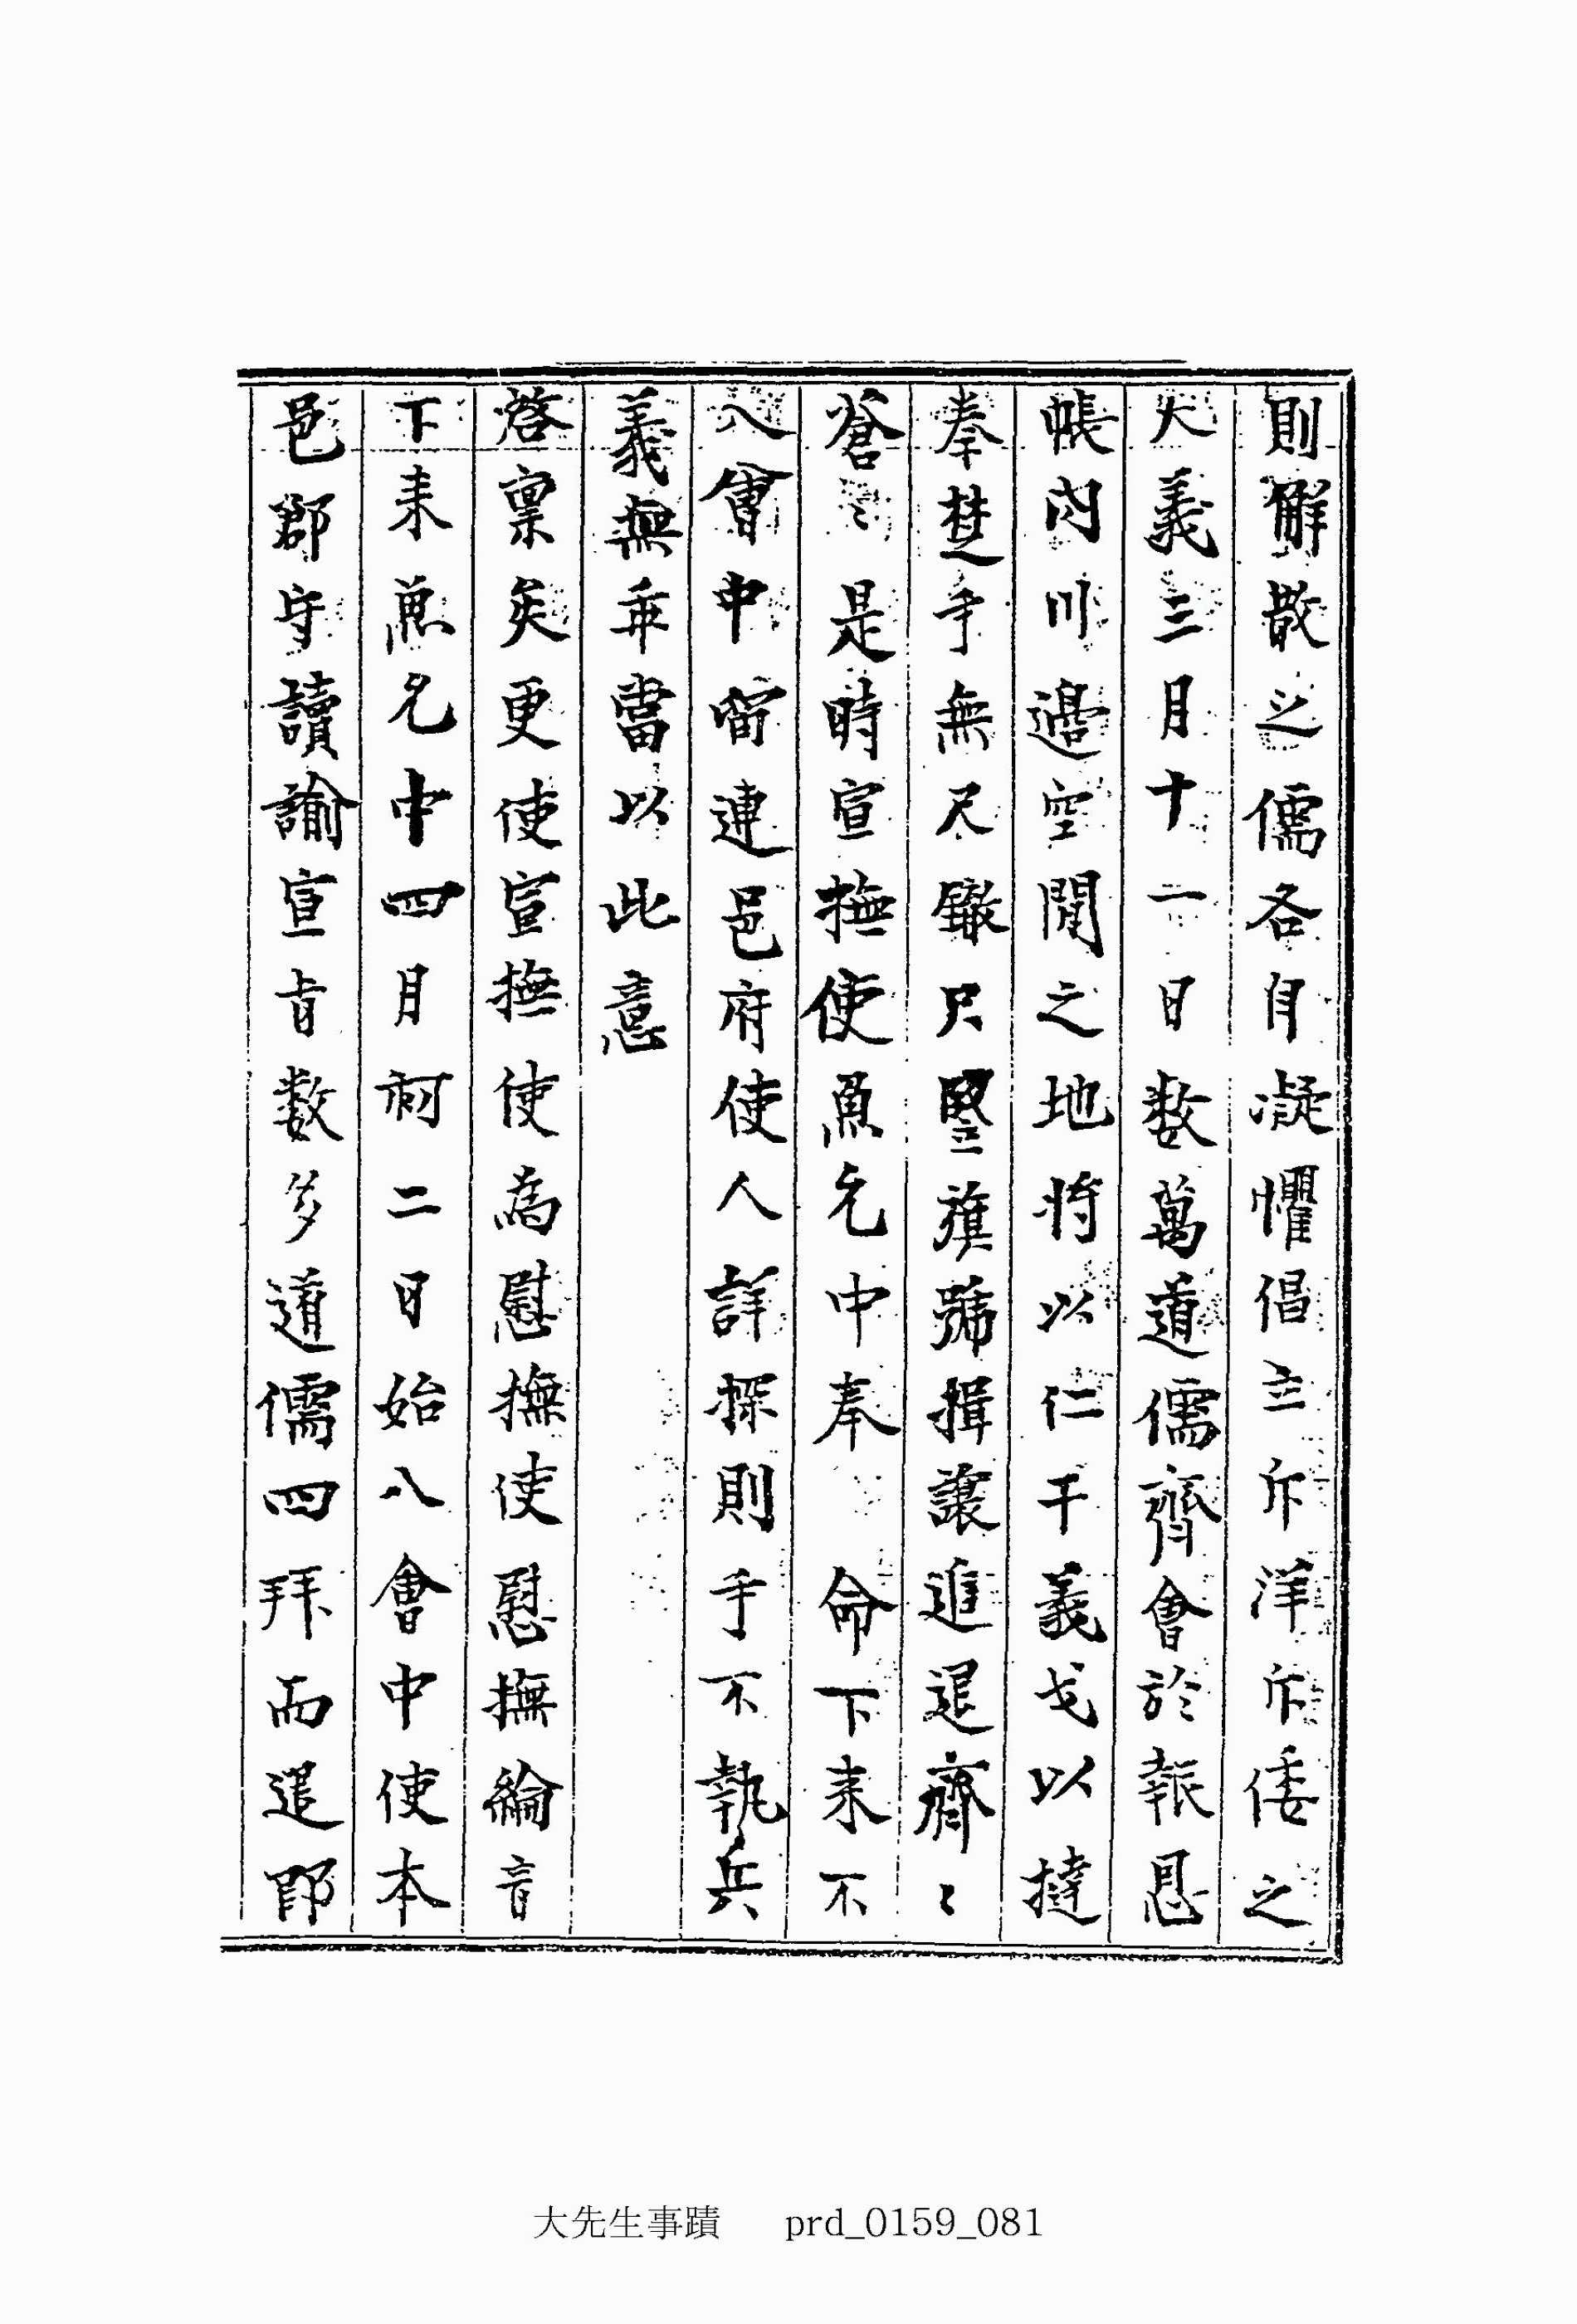 則解散之儒各自凝懼倡立斥洋斥倭之
大義三月十一日數萬道儒齊會於報恩
帳內川邊空閒之地將以仁干義戈以撻
秦楚手無尺鐵只竪旗號揖讓進退齊〻
蒼〻是時宣撫使魚允中奉　命下來不
入會中留連邑府使人詳探則手不執兵
義無乖當以此意
啓稟矣更使宣撫使為慰撫使慰撫綸音
下來魚允中四月初二日始入會中使本
邑郡守讀諭宣旨數多道儒四拜而退卽
大先生事蹟 prd_0159_081